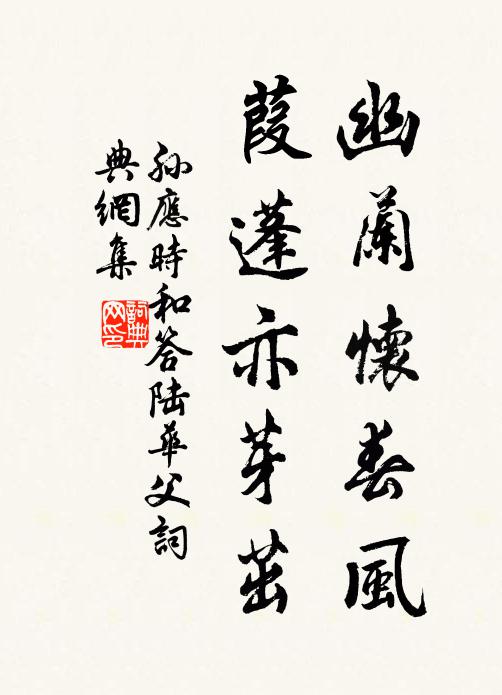 幽蘭懷春風
葭蓬亦芽茁
孫應時和答陸華父詞
典網集
詞典網印